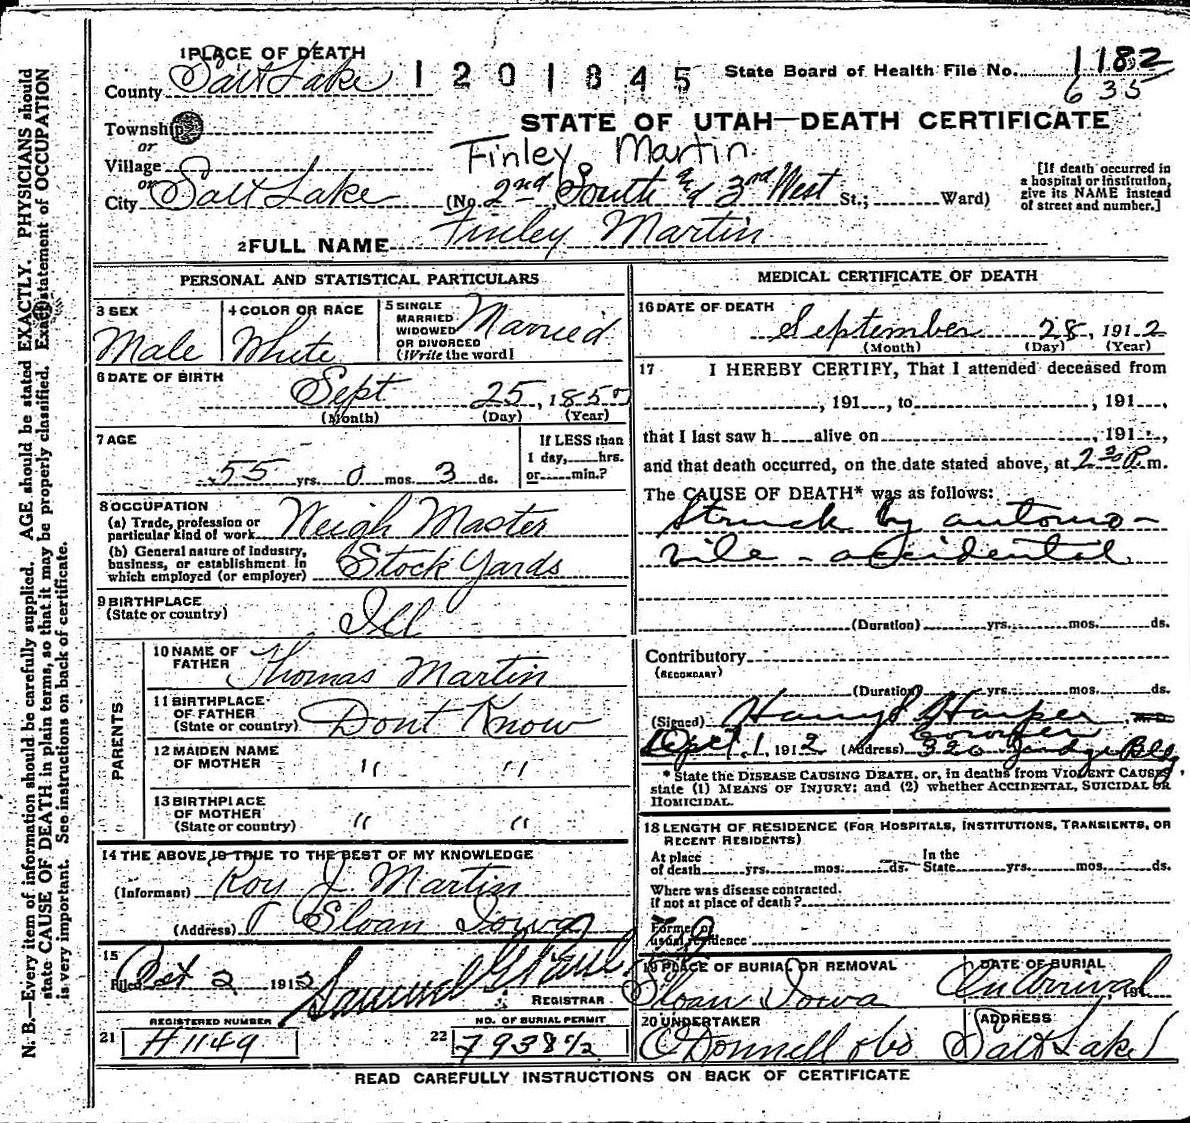 1 PLACE OF DEATH
County Salt Lake
1201845
State Board of Health File No. 1182
635
Township
or
Village
or
City Salt Lake
STATE OF UTAH—DEATH CERTIFICATE
Finley Martin
(No. 2nd South & 3rd West St.; Ward)
[If death occurred in
a hospital or institution,
give its NAME instead
of street and number.]
2 FULL NAME Finley Martin
PERSONAL AND STATISTICAL PARTICULARS
3 SEX
Male
4 COLOR OR RACE
White
5 SINGLE
MARRIED
WIDOWED
OR DIVORCED
(Write the word)
Married
6 DATE OF BIRTH
Sept 25, 1857
(Month) (Day) (Year)
7 AGE
55 yrs. 0 mos. 3 ds.
If LESS than
1 day, hrs.
or min.?
8 OCCUPATION
(a) Trade, profession or
particular kind of work Weigh Master
(b) General nature of industry,
business, or establishment in
which employed (or employer) Stock Yards
9 BIRTHPLACE
(State or country) Ill
PARENTS
10 NAME OF
FATHER Thomas Martin
11 BIRTHPLACE
OF FATHER
(State or country) Dont Know
12 MAIDEN NAME
OF MOTHER " "
13 BIRTHPLACE
OF MOTHER
(State or country) " "
14 THE ABOVE IS TRUE TO THE BEST OF MY KNOWLEDGE
(Informant) Roy J. Martin
(Address) Sloan Iowa
15
Filed Oct 2 1912
REGISTRAR
REGISTERED NUMBER
21 H1149
NO. OF BURIAL PERMIT
22 7938½
MEDICAL CERTIFICATE OF DEATH
16 DATE OF DEATH
September 28, 1912
(Month) (Day) (Year)
17 I HEREBY CERTIFY, That I attended deceased from
, 191 , to , 191 ,
that I last saw h alive on , 191 ,
and that death occurred, on the date stated above, at 2 30 P. m.
The CAUSE OF DEATH* was as follows:
Struck by automo-
bile - accidental
(Duration) yrs. mos. ds.
Contributory
(SECONDARY)
(Duration) yrs. mos. ds.
(Signed) Harry S Harper
Coroner
Oct. 1, 1912 (Address) 320 Judge Bldg
* State the DISEASE CAUSING DEATH, or, in deaths from VIOLENT CAUSES,
state (1) MEANS OF INJURY; and (2) whether ACCIDENTAL, SUICIDAL OR
HOMICIDAL.
18 LENGTH OF RESIDENCE (FOR HOSPITALS, INSTITUTIONS, TRANSIENTS, OR
RECENT RESIDENTS)
At place
of death yrs. mos. ds.
In the
State yrs. mos. ds.
Where was disease contracted.
if not at place of death?
Former or
usual residence
19 PLACE OF BURIAL OR REMOVAL
Sloan Iowa
DATE OF BURIAL
On Arrival, 191
20 UNDERTAKER
O'Donnell & Co
ADDRESS
Salt Lake
READ CAREFULLY INSTRUCTIONS ON BACK OF CERTIFICATE
N. B.—Every item of information should be carefully supplied. AGE should be stated EXACTLY. PHYSICIANS should
state CAUSE OF DEATH in plain terms, so that it may be properly classified. Exact statement of OCCUPATION
is very important. See instructions on back of certificate.